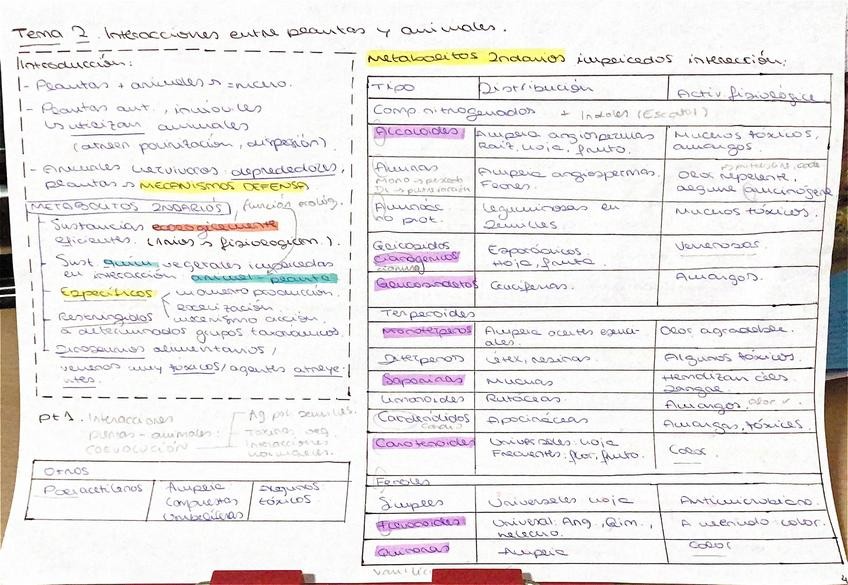 Tema 2. Interacciones entre plantas y animales.
Introducción:
- Plantas + animales → = nicho.
- Plantas aut., inmóviles
↳ utilizan animales
(atraen polinización, dispersión).
- Animales hervívoros: depredadores,
plantas → MECANISMOS DEFENSA
METABOLITOS 2NDARIOS (función ecológ.
Sustancias ecológicamente
eficientes. (1arios → fisiológicam.).
Sust. quím vegetales implicadas
en interacción animal-planta
Específicos momento producción.
localización.
mecanismo acción.
Restringidos
a determinados grupos taxonómicos.
alimentarios /
venenos muy tóxicos / agentes atraye
ntes.
pt 1. Interacciones
plantas-animales:
COEVOLUCIÓN
Ag pol semillas.
Toxinas veg.
Interacciones
Otros
Poliacetilenos
Amplia
Compuestas
Umbelíferas
Algunos
tóxicos
Metabolitos 2ndarios implicados interacción:
Tipo Distribución Activ. fisiológica
Comp nitrogenados + Indoles (Escatol)
Alcaloides Amplia angiospermas Muchos tóxicos,
Raíz, hoja, fruto. amargos.
Aminas Amplia angiospermas.
Mono → pescado Flores. Olor repelente,
Di → putrefacción alguna alucinógena
Aminoác Leguminosas en Muchos tóxicos.
no prot. semillas
Glicósidos Esporádicos Venenosas
Cianogénicos Hoja, fruto
Glucosinolatos Crucíferas. Amargos.
Terpenoides
Monoterpenos Amplia aceites esenci- Olor agradable.
ales.
Diterpenos Látex, resinas. Algunos tóxicos.
Saponinas Muchas Hemolizan céls.
sangre.
Limonoides Rutáceas Amargos.
Cardenólidos Apocináceas Amargas, tóxicas.
Carotenoides Universales: hoja Color.
Frecuentes: flor, fruto.
Fenoles
Simples Universales hoja Antimicrobiano.
Flavonoides Universal: Ang., Gim., A menudo color.
helecho.
Quinonas Amplia Color